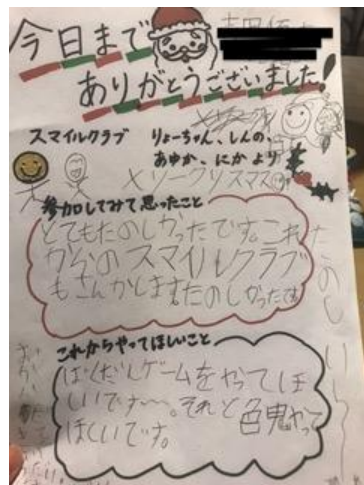 今日まで
ありがとうございました！
スマイルクラブ　りょーちゃん、しんの、
あゆか、にか より
メリークリスマス
参加してみて思ったこと
とてもたのしかったです。これ
からのスマイルクラブ
もさんかします。たのしかったです
これからやってほしいこと
ばくだんゲームをやってほ
しいです〜。それと色鬼やって
ほしいです。